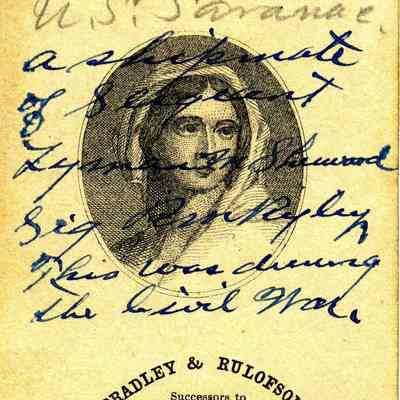 U.S. Saranac.
a shipmate
of Sergeant
Lyman
This was during
the Civil War.
BRADLEY & RULOFSON
Successors to